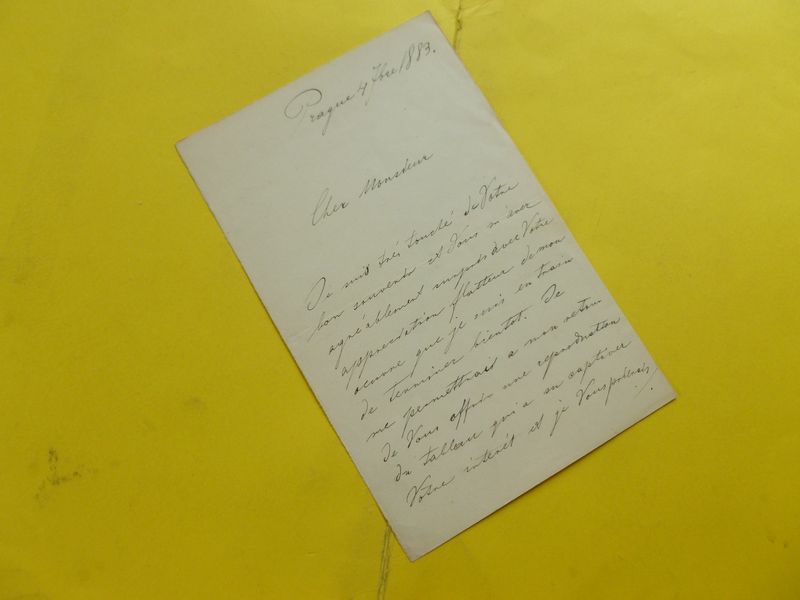 Prague 4 7bre 1883.
Cher Monsieur
Je suis très touché de Votre
bon souvenir et Vous m'avez
agréablement surpris avec Votre
appreciation flatteur de mon
oeuvre que je suis en train
de terminer bientot. Je
me permettrais a mon retour
de Vous offrir une reproduction
du tableau qui a su captiver
Votre interêt et je Vous